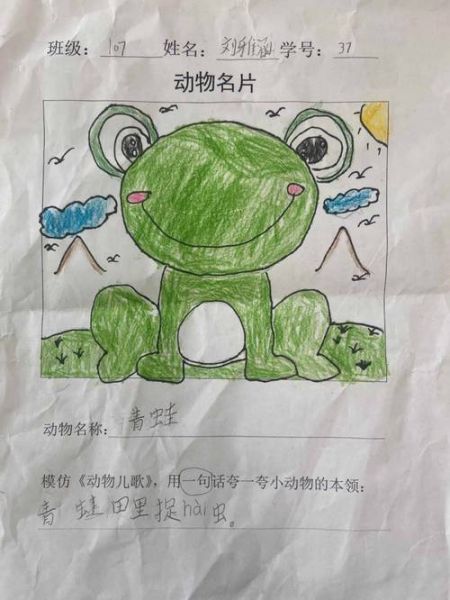 班级：107 姓名：刘雅涵 学号：37
动物名片
动物名称：青蛙
模仿《动物儿歌》，用一句话夸一夸小动物的本领：
青蛙田里捉hài虫。